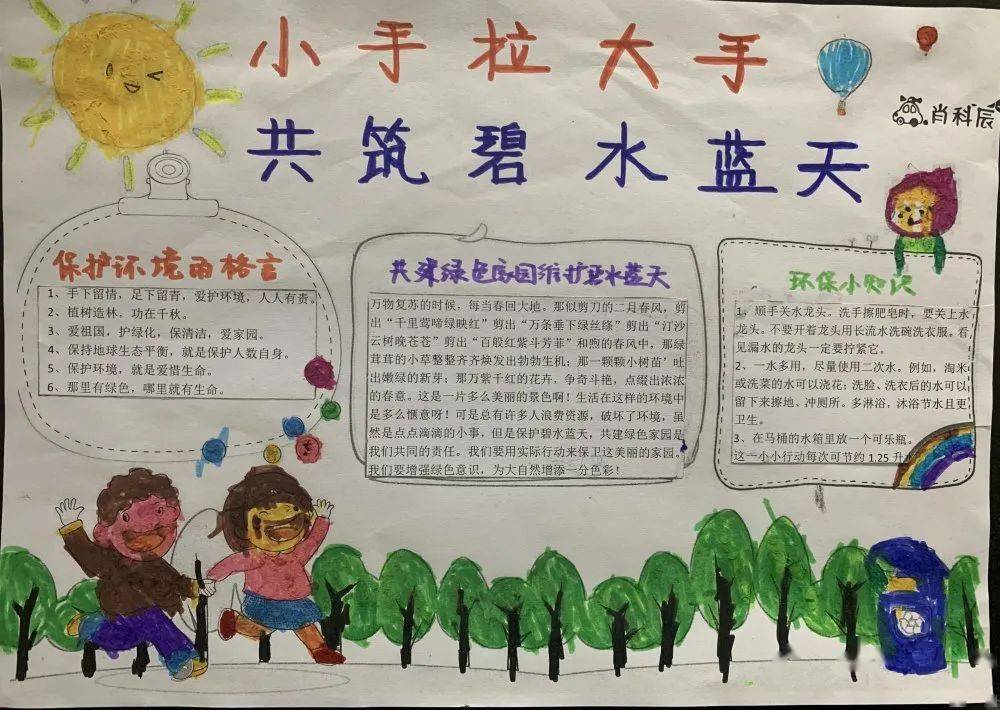 小手拉大手
共筑碧水蓝天
肖科辰
保护环境雨格言
1、手下留情，足下留青，爱护环境，人人有责。
2、植树造林，功在千秋。
3、爱祖国，护绿化，保清洁，爱家园。
4、保持地球生态平衡，就是保护人数自身。
5、保护环境，就是爱惜生命。
6、那里有绿色，哪里就有生命。
共建绿色家园维护碧水蓝天
万物复苏的时候，每当春回大地。那似剪刀的二月春风，剪
出“千里莺啼绿映红”剪出“万条垂下绿丝绦”剪出“汀沙
云树晚苍苍”剪出“百般红紫斗芳菲”和煦的春风中，那绿
茸茸的小草整整齐齐焕发出勃勃生机；那一颗颗小树苗’吐
出嫩绿的新芽；那万紫千红的花卉，争奇斗艳，点缀出浓浓
的春意。这是一片多么美丽的景色啊！生活在这样的环境中
是多么惬意呀！可是总有许多人浪费资源，破坏了环境，虽
然是点点滴滴的小事，但是保护碧水蓝天，共建绿色家园是
我们共同的责任。我们要用实际行动来保卫这美丽的家园。
我们要增强绿色意识，为大自然增添一分色彩！
环保小知识
1，顺手关水龙头。洗手擦肥皂时，要关上水
龙头。不要开着龙头用长流水洗碗洗衣服。看
见漏水的龙头一定要拧紧它。
2、一水多用，尽量使用二次水。例如，淘米
或洗菜的水可以浇花；洗脸、洗衣后的水可以
留下来擦地、冲厕所。多淋浴，沐浴节水且更
卫生。
3、在马桶的水箱里放一个可乐瓶。
这一小小行动每次可节约 1.25 升